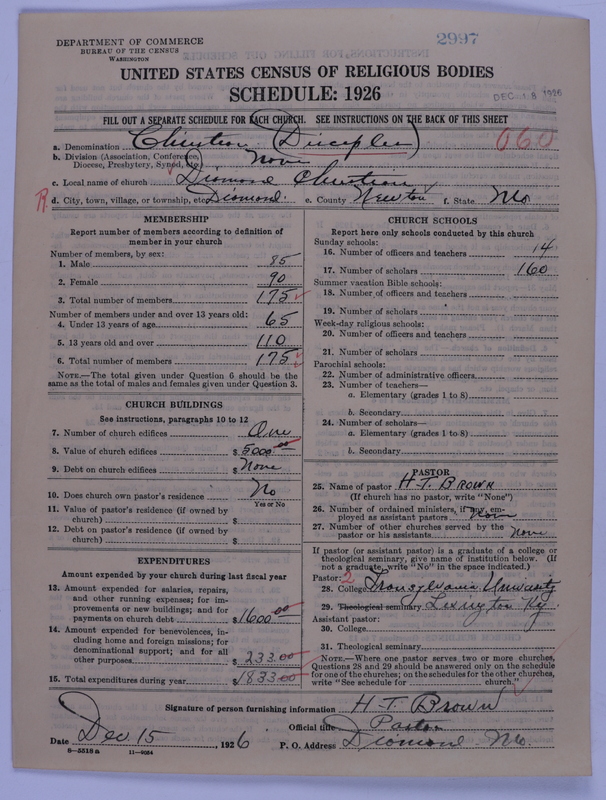 2997
DEPARTMENT OF COMMERCE
BUREAU OF THE CENSUS
WASHINGTON
UNITED STATES CENSUS OF RELIGIOUS BODIES
SCHEDULE: 1926
DEC 18 1926
FILL OUT A SEPARATE SCHEDULE FOR EACH CHURCH. SEE INSTRUCTIONS ON THE BACK OF THIS SHEET
a. Denomination Christian (Disciples) 060
b. Division (Association, Conference, Diocese, Presbytery, Synod, etc.) None
c. Local name of church Diamond Christian
R d. City, town, village, or township, etc. Diamond. e. County Newton f. State Mo.
MEMBERSHIP
Report number of members according to definition of member in your church
Number of members, by sex:
1. Male 85
2. Female 90
3. Total number of members 175
Number of members under and over 13 years old:
4. Under 13 years of age 65
5. 13 years old and over 110
6. Total number of members 175
NOTE.—The total given under Question 6 should be the
same as the total of males and females given under Question 3.
CHURCH BUILDINGS
See instructions, paragraphs 10 to 12
7. Number of church edifices One
8. Value of church edifices $ 5000.00
9. Debt on church edifices $ None
10. Does church own pastor's residence No
Yes or No
11. Value of pastor's residence (if owned by
church) $
12. Debt on pastor's residence (if owned by
church) $
EXPENDITURES
Amount expended by your church during last fiscal year
13. Amount expended for salaries, repairs,
and other running expenses; for im-
provements or new buildings; and for
payments on church debt $ 1600.00
14. Amount expended for benevolences, in-
cluding home and foreign missions; for
denominational support; and for all
other purposes $ 233.00
15. Total expenditures during year $ 1833.00
CHURCH SCHOOLS
Report here only schools conducted by this church
Sunday schools:
16. Number of officers and teachers 14
17. Number of scholars 160
Summer vacation Bible schools:
18. Number of officers and teachers
19. Number of scholars
Week-day religious schools:
20. Number of officers and teachers
21. Number of scholars
Parochial schools:
22. Number of administrative officers
23. Number of teachers—
a. Elementary (grades 1 to 8)
b. Secondary
24. Number of scholars—
a. Elementary (grades 1 to 8)
b. Secondary
PASTOR
25. Name of pastor H-T. BROWN
(If church has no pastor, write "None")
26. Number of ordained ministers, if any, em-
ployed as assistant pastors None
27. Number of other churches served by the
pastor or his assistants None
If pastor (or assistant pastor) is a graduate of a college or
theological seminary, give name of institution below. (If
not a graduate, write "No" in the space indicated.)
Pastor: 2
28. College Transylvania University
29. Theological seminary Lexington Ky
Assistant pastor:
30. College
31. Theological seminary
NOTE.—Where one pastor serves two or more churches,
Questions 28 and 29 should be answered only on the schedule
for one of the churches; on the schedules for the other churches,
write "See schedule for church."
Signature of person furnishing information H-T. BROWN
Official title Pastor
Date Dec. 15, 1926 P. O. Address Diamond Mo.
8—5518 a 11—9084